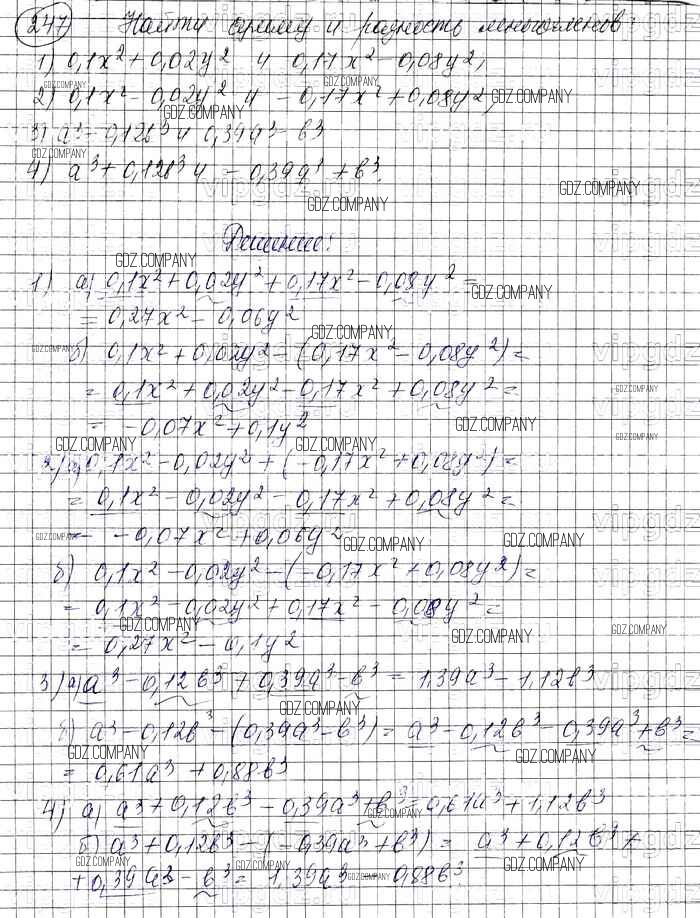 247 Найти сумму и разность многочленов:
1) 0,1x² + 0,02y² и 0,17x² - 0,08y²;
2) 0,1x² - 0,02y² и -0,17x² + 0,08y²;
3) a³ - 0,12b³ и 0,39a³ - b³
4) a³ + 0,12b³ и -0,39a³ + b³.
Решение:
1) а) 0,1x² + 0,02y² + 0,17x² - 0,08y² =
= 0,27x² - 0,06y²
б) 0,1x² + 0,02y² - (0,17x² - 0,08y²) =
= 0,1x² + 0,02y² - 0,17x² + 0,08y² =
= -0,07x² + 0,1y²
2) а) 0,1x² - 0,02y² + (-0,17x² + 0,08y²) =
= 0,1x² - 0,02y² - 0,17x² + 0,08y² =
= -0,07x² + 0,06y²
б) 0,1x² - 0,02y² - (-0,17x² + 0,08y²) =
= 0,1x² - 0,02y² + 0,17x² - 0,08y² =
= 0,27x² - 0,1y²
3) а) a³ - 0,12b³ + 0,39a³ - b³ = 1,39a³ - 1,12b³
б) a³ - 0,12b³ - (0,39a³ - b³) = a³ - 0,12b³ - 0,39a³ + b³ =
= 0,61a³ + 0,88b³
4) а) a³ + 0,12b³ - 0,39a³ + b³ = 0,61a³ + 1,12b³
б) a³ + 0,12b³ - (-0,39a³ + b³) = a³ + 0,12b³ +
+ 0,39a³ - b³ = 1,39a³ - 0,88b³.
GDZ.COMPANY
vipgdz.ru